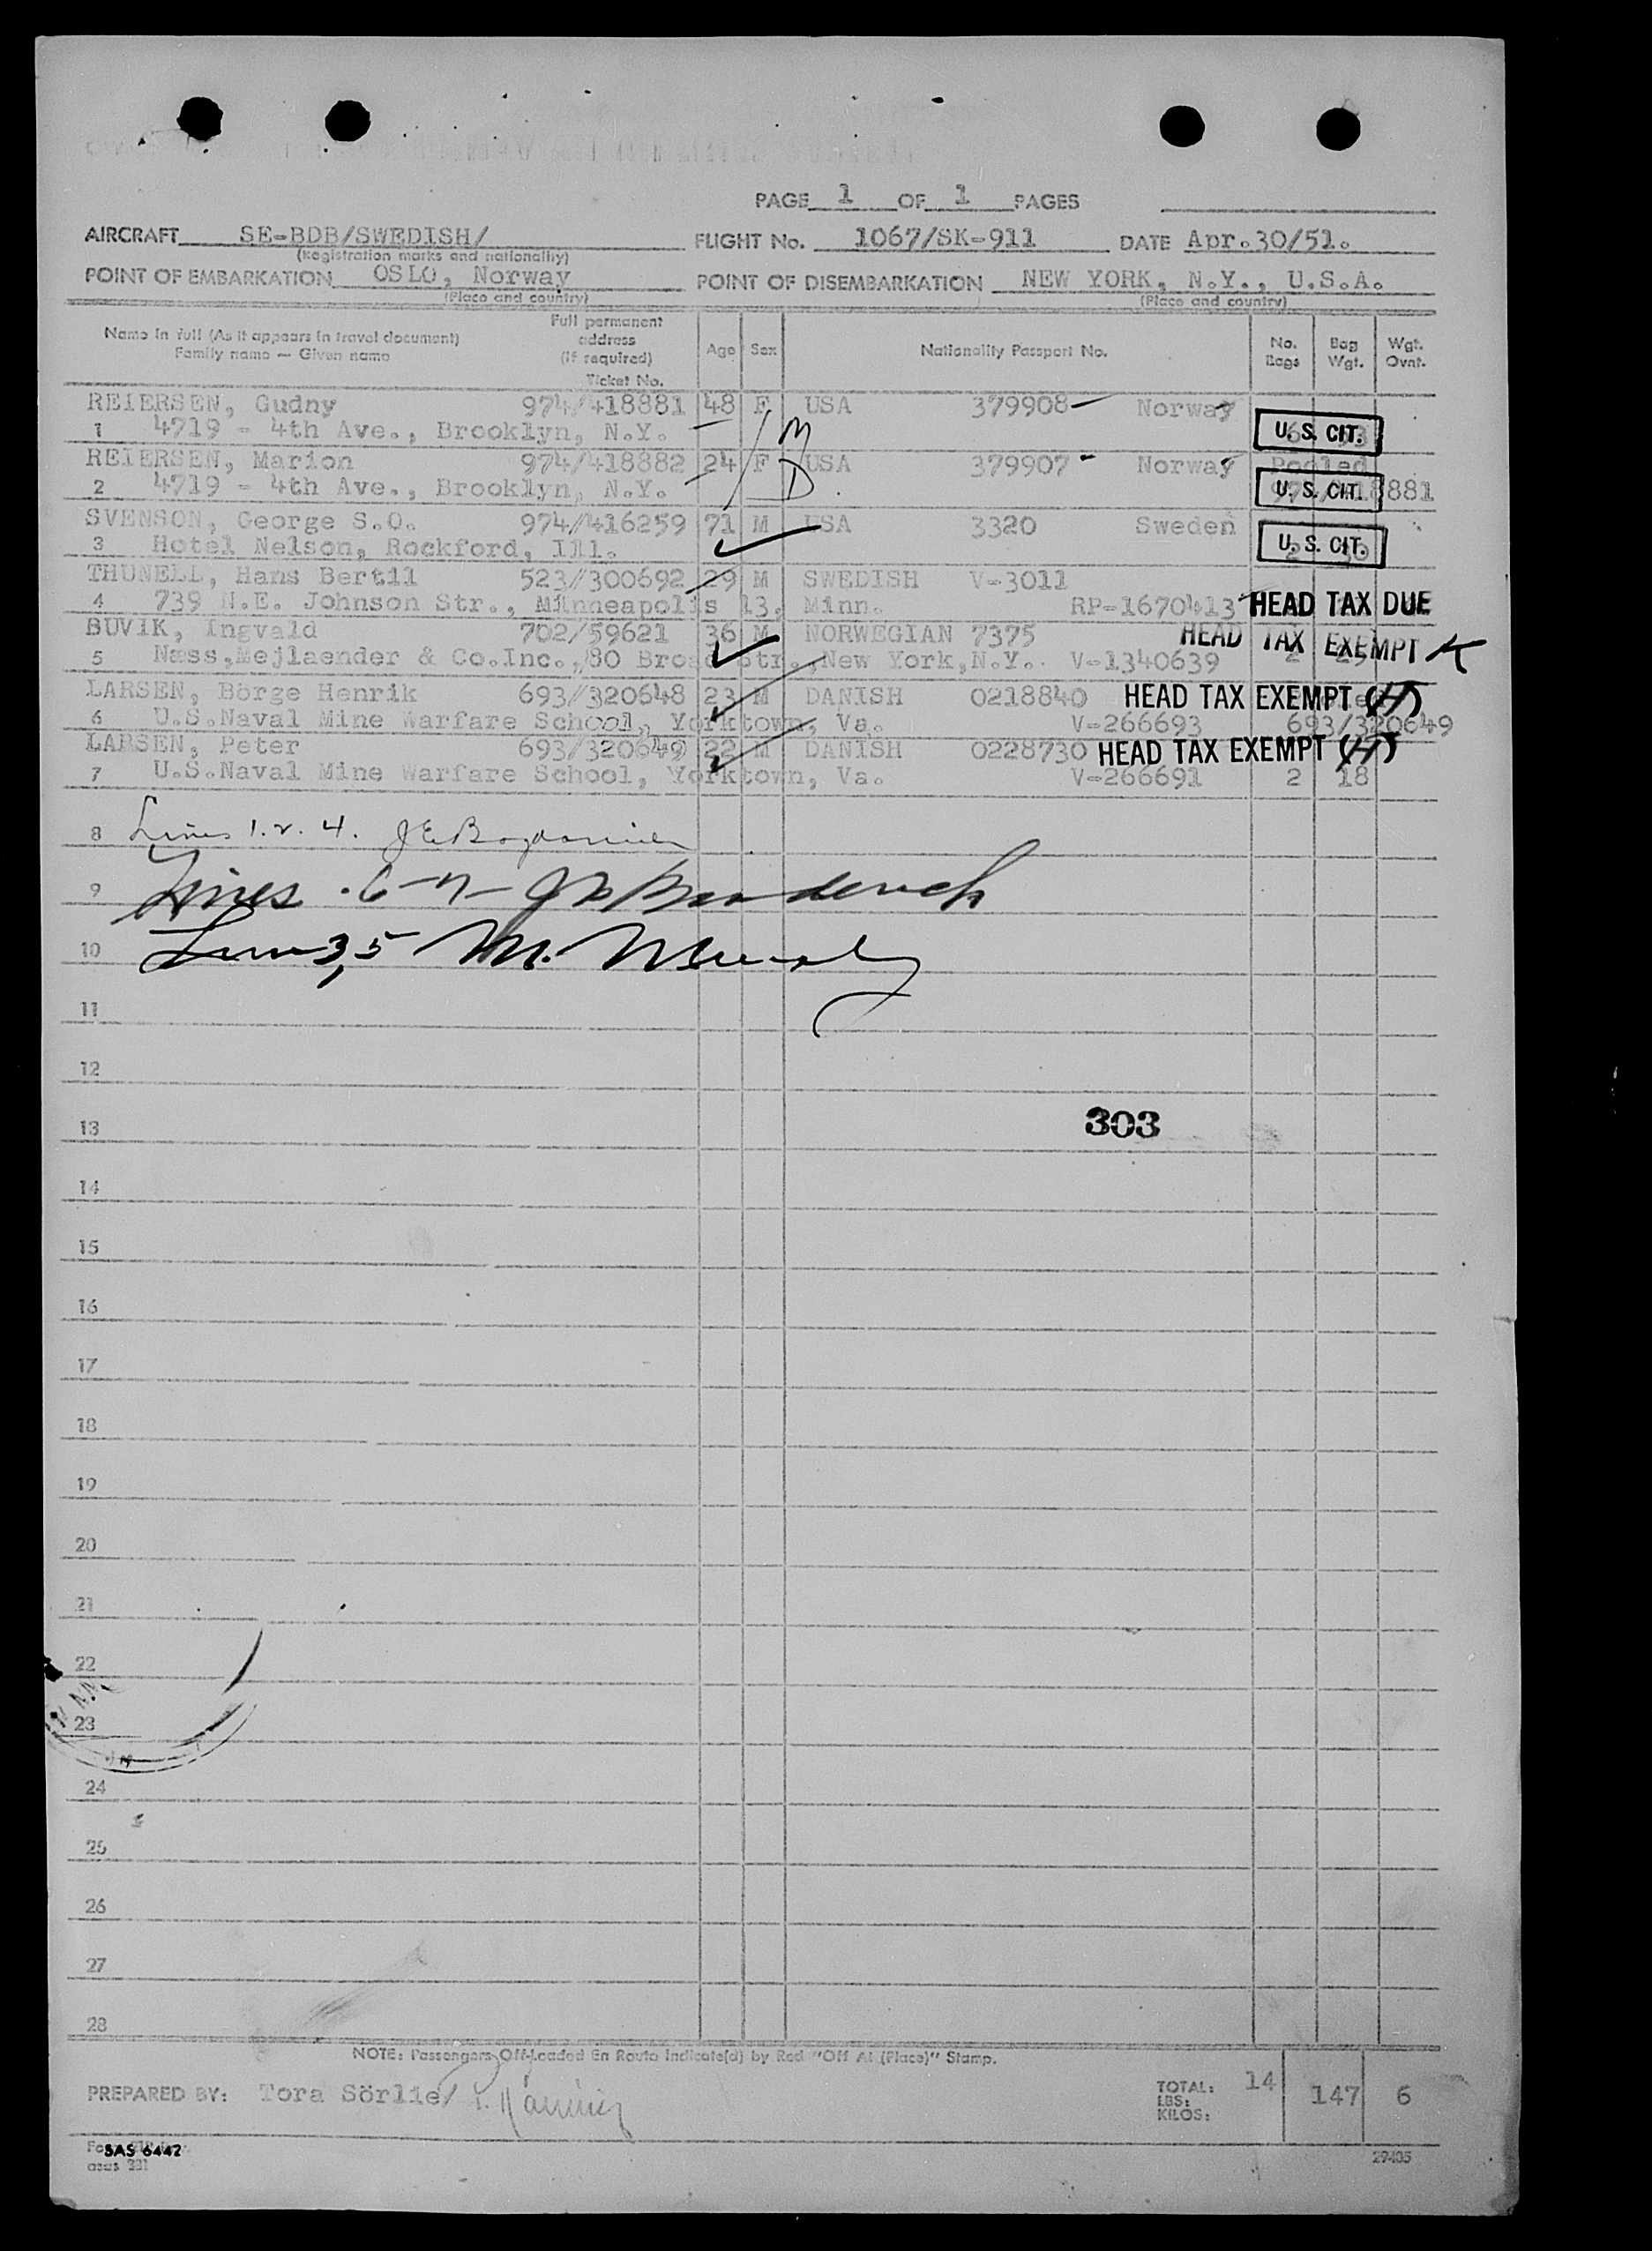 PAGE 1 OF 1 PAGES
AIRCRAFT SE-BDB/SWEDISH/ FLIGHT No. 1067/SK-911 DATE Apr.30/51.
(Registration marks and nationality)
POINT OF EMBARKATION OSLO, Norway POINT OF DISEMBARKATION NEW YORK, N.Y., U.S.A.
(Place and country) (Place and country)
Name in full (As it appears in travel document) Family name — Given name Full permanent address (if required) Ticket No. Age Sex Nationality Passport No. No. Bags Bag Wgt. Wgt. Ovnt.
REIERSEN, Gudny 974/418881 48 F USA 379908 Norway
1 4719 - 4th Ave., Brooklyn, N.Y. U. S. CIT.
REIERSEN, Marion 974/418882 24 F USA 379907 Norway Pooled
2 4719 - 4th Ave., Brooklyn, N.Y. U. S. CIT. 974/418881
M
D
SVENSON, George S.O. 974/416259 71 M USA 3320 Sweden
3 Hotel Nelson, Rockford, Ill. U. S. CIT.
THUNELL, Hans Bertil 523/300692 29 M SWEDISH V-3011
4 739 N.E. Johnson Str., Minneapolis 13, Minn. RP-1670413 HEAD TAX DUE
BUVIK, Ingvald 702/59621 36 M NORWEGIAN 7375 HEAD TAX EXEMPT K
5 Næss,Mejlaender & Co.Inc.,80 Broad Str.,New York,N.Y. V-1340639
LARSEN, Börge Henrik 693/320648 23 M DANISH 0218840 HEAD TAX EXEMPT (H)
6 U.S.Naval Mine Warfare School, Yorktown, Va. V-266693 693/320649
LARSEN, Peter 693/320649 22 M DANISH 0228730 HEAD TAX EXEMPT (H)
7 U.S.Naval Mine Warfare School, Yorktown, Va. V-266691 2 18
8 Lines 1. 2. 4.
9 Lines 6-7-
10 Lines 3,5 M.
11
12
13 303
14
15
16
17
18
19
20
21
22
23
24
25
26
27
28
NOTE: Passengers Off-Loaded En Route Indicate(d) by Red "Off At (Place)" Stamp.
PREPARED BY: Tora Sörlie/ TOTAL: 14 147 6
LBS:
KILOS:
SAS 6442
29405